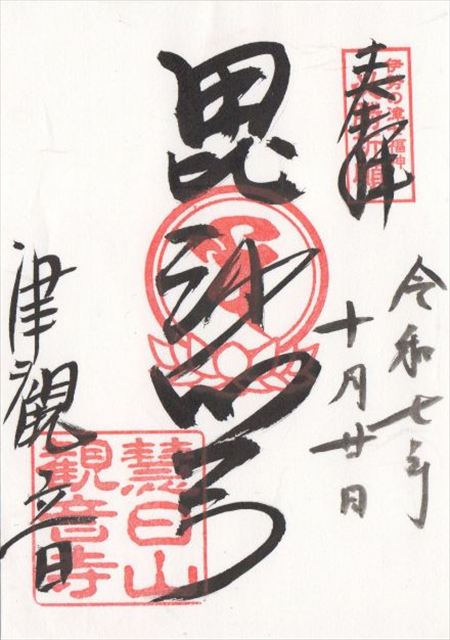 奉拝
伊勢の津七福神
令和七年
十月廿日
毘沙門天
津観音
慧日山
観音寺